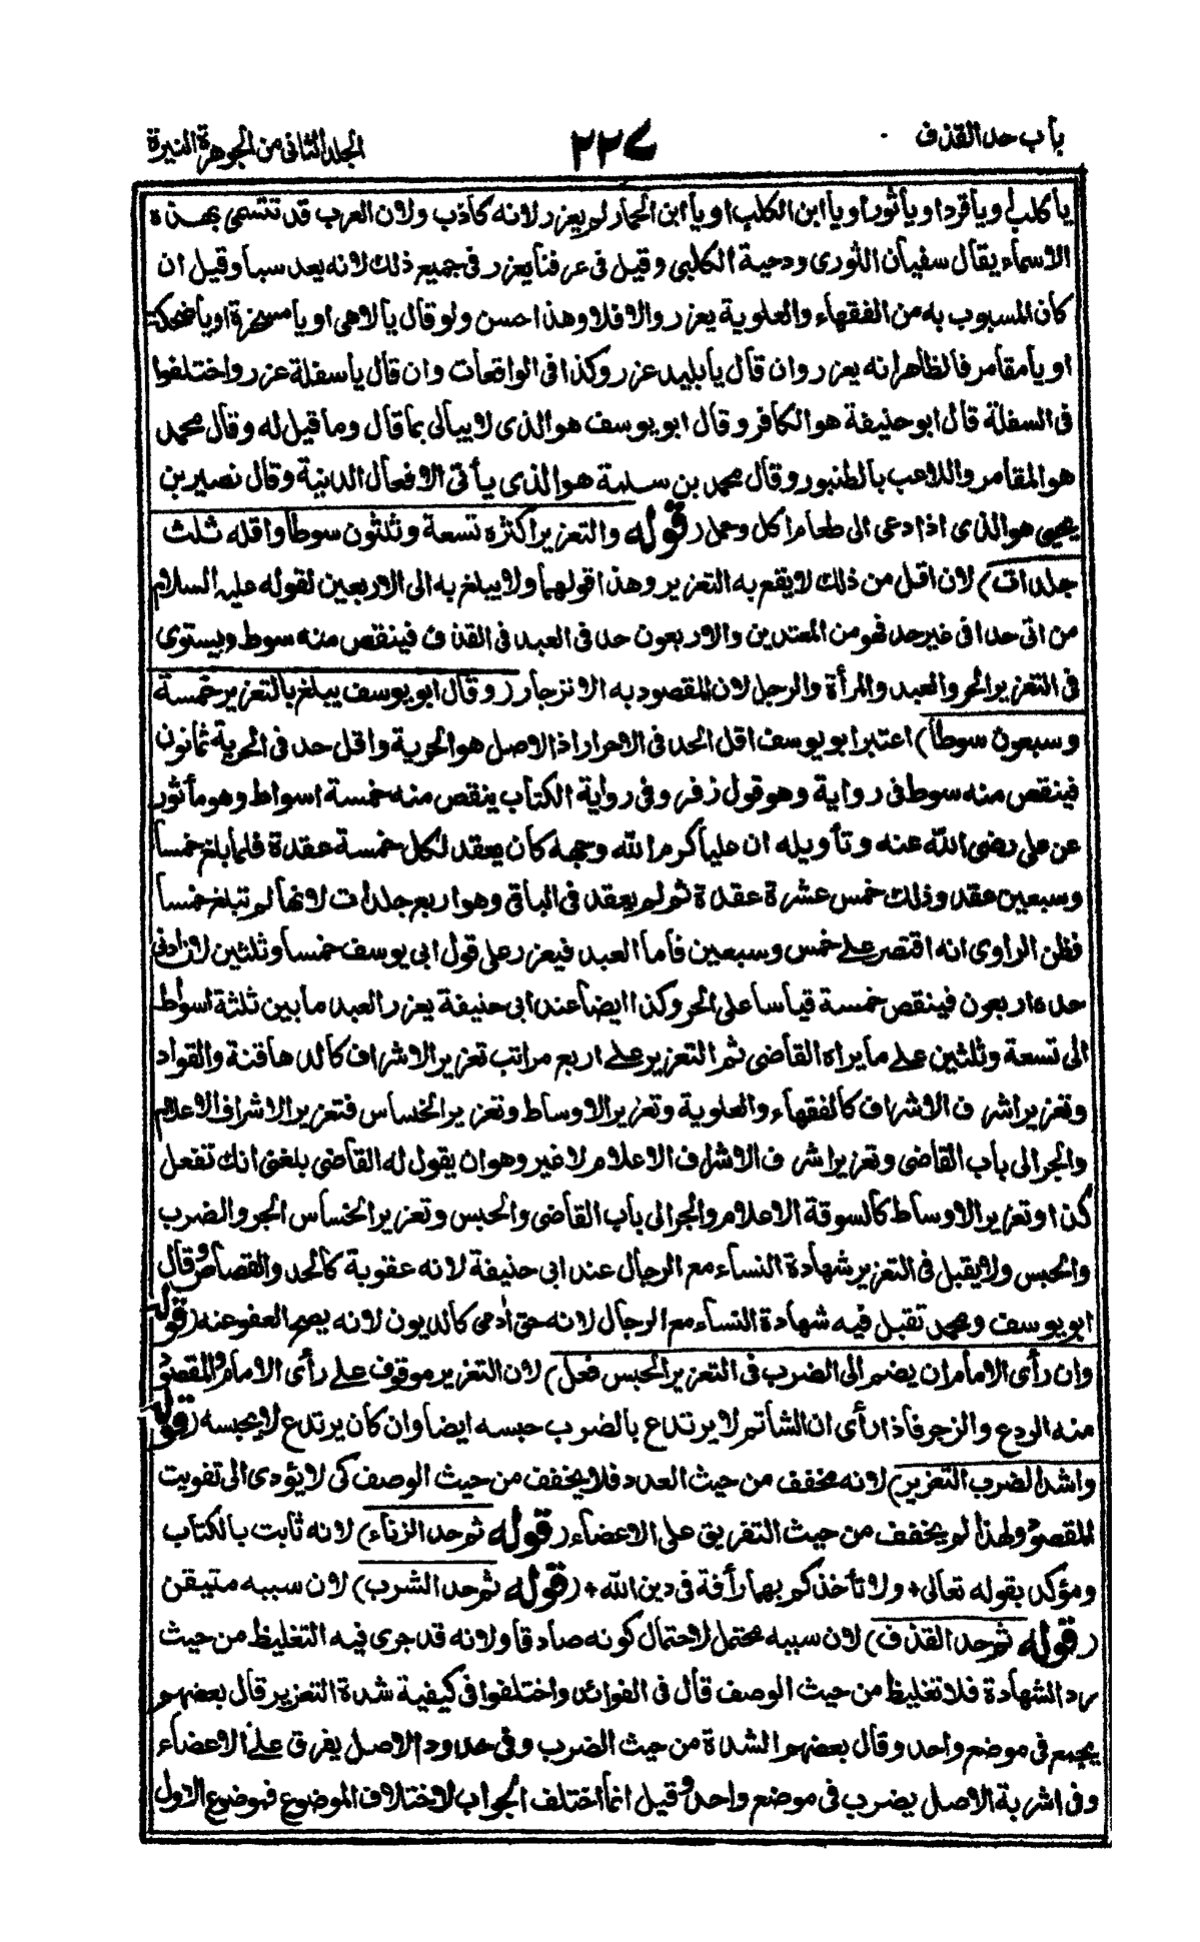 باب حد القذف
٢٢٧
المجلد الثانى من الجوهرة النيرة
يا كلب او يا قرد او يا ثور او يا ابن الكلب او يا ابن الحمار لم يعزر لانه كاذب ولان العرب قد تتسمى بهذه
الاسماء يقال سفيان الثورى ودحية الكلبى وقيل فى عرفنا يعزر فى جميع ذلك لانه يعد سبا وقيل ان
كان المسبوب به من الفقهاء والعلوية يعزر والا فلا وهذا احسن ولو قال يا لاهى او يا مسخرة او يا ضحكة
او يا مقامر فالظاهر انه يعزر وان قال يا بليد عزر وكذا فى الواقعات وان قال يا سفلة عزر واختلفوا
فى السفلة قال ابو حنيفة هو الكافر وقال ابو يوسف هو الذى لا يبالى بما قال وما قيل له وقال محمد
هو المقامر واللاعب بالطنبور وقال محمد بن سلمة هو الذى يأتى الافعال الدنية وقال نصير بن
يحيى هو الذى اذا دعى الى طعام اكل وحمل (قوله والتعزير اكثره تسعة وثلثون سوطا واقله ثلث
جلدات) لان اقل من ذلك لا يقع به التعزير وهذا قولهما ولا يبلغ به الى الاربعين لقوله عليه السلام
من اتى حدا فى غير حد فهو من المعتدين والاربعون حد فى العبد فى القذف فينقص منه سوط ويستوى
فى التعزير الحر والعبد والمرأة والرجل لان المقصود به الانزجار (وقال ابو يوسف يبلغ بالتعزير خمسة
وسبعون سوطا) اعتبر ابو يوسف اقل الحد فى الاحرار اذ الاصل هو الحرية واقل حد فى الحرية ثمانون
فينقص منه سوط فى رواية وهو قول زفر وفى رواية الكتاب ينقص منه خمسة اسواط وهو مأثور
عن على رضى الله عنه وتأويله ان عليا كرم الله وجهه كان يعقد لكل خمسة عقدة فلما بلغ خمسا
وسبعين عقد وذلك خمس عشرة عقدة ثم لم يعقد فى الباقى وهو اربع جلدات لانها لم تبلغ خمسا
فظن الراوى انه اقتصر على خمس وسبعين فاما العبد فيعزر على قول ابى يوسف خمسا وثلثين لان ادنى
حده اربعون فينقص خمسة قياسا على الحر وكذا ايضا عند ابى حنيفة يعزر العبد ما بين ثلثة اسواط
الى تسعة وثلثين على ما يراه القاضى ثم التعزير على اربع مراتب تعزير الاشراف كالدهاقنة والقواد
وتعزير اشرف الاشراف كالفقهاء والعلوية وتعزير الاوساط وتعزير الخساس فتعزير الاشراف الاعلام
والجر الى باب القاضى وتعزير اشرف الاشراف الاعلام لا غير وهو ان يقول له القاضى بلغنى انك تفعل
كذا وتعزير الاوساط كالسوقة الاعلام والجر الى باب القاضى والحبس وتعزير الخساس الجر والضرب
والحبس ولا يقبل فى التعزير شهادة النساء مع الرجال عند ابى حنيفة لانه عقوبة كالحد والقصاص وقال
ابو يوسف ومحمد تقبل فيه شهادة النساء مع الرجال لانه حق ادمى كالديون لانه يصح العفو عنه (قوله
وان رأى الامام ان يضم الى الضرب فى التعزير الحبس فعل) لان التعزير موقوف على رأى الامام والمقصود
منه الردع والزجر فاذا رأى ان الشاتم لا يرتدع بالضرب حبسه ايضا وان كان يرتدع لا يحبسه (قوله
واشد الضرب التعزير) لانه مخفف من حيث العدد فلا يخفف من حيث الوصف كى لا يؤدى الى تفويت
المقصود ولهذا لم يخفف من حيث التفريق على الاعضاء (قوله ثم حد الزناء) لانه ثابت بالكتاب
ومؤكد بقوله تعالى + ولا تأخذكم بهما رأفة فى دين الله + (قوله ثم حد الشرب) لان سببه متيقن
(قوله ثم حد القذف) لان سببه محتمل لاحتمال كونه صادقا ولانه قد جرى فيه التغليظ من حيث
رد الشهادة فلا تغليظ من حيث الوصف قال فى الفوائد واختلفوا فى كيفية شدة التعزير قال بعضهم
يجمع فى موضع واحد وقال بعضهم الشدة من حيث الضرب وفى حدود الاصل يفرق على الاعضاء
وفى اشربة الاصل يضرب فى موضع واحد وقيل انما اختلف الجواب لاختلاف الموضوع فموضوع الاول